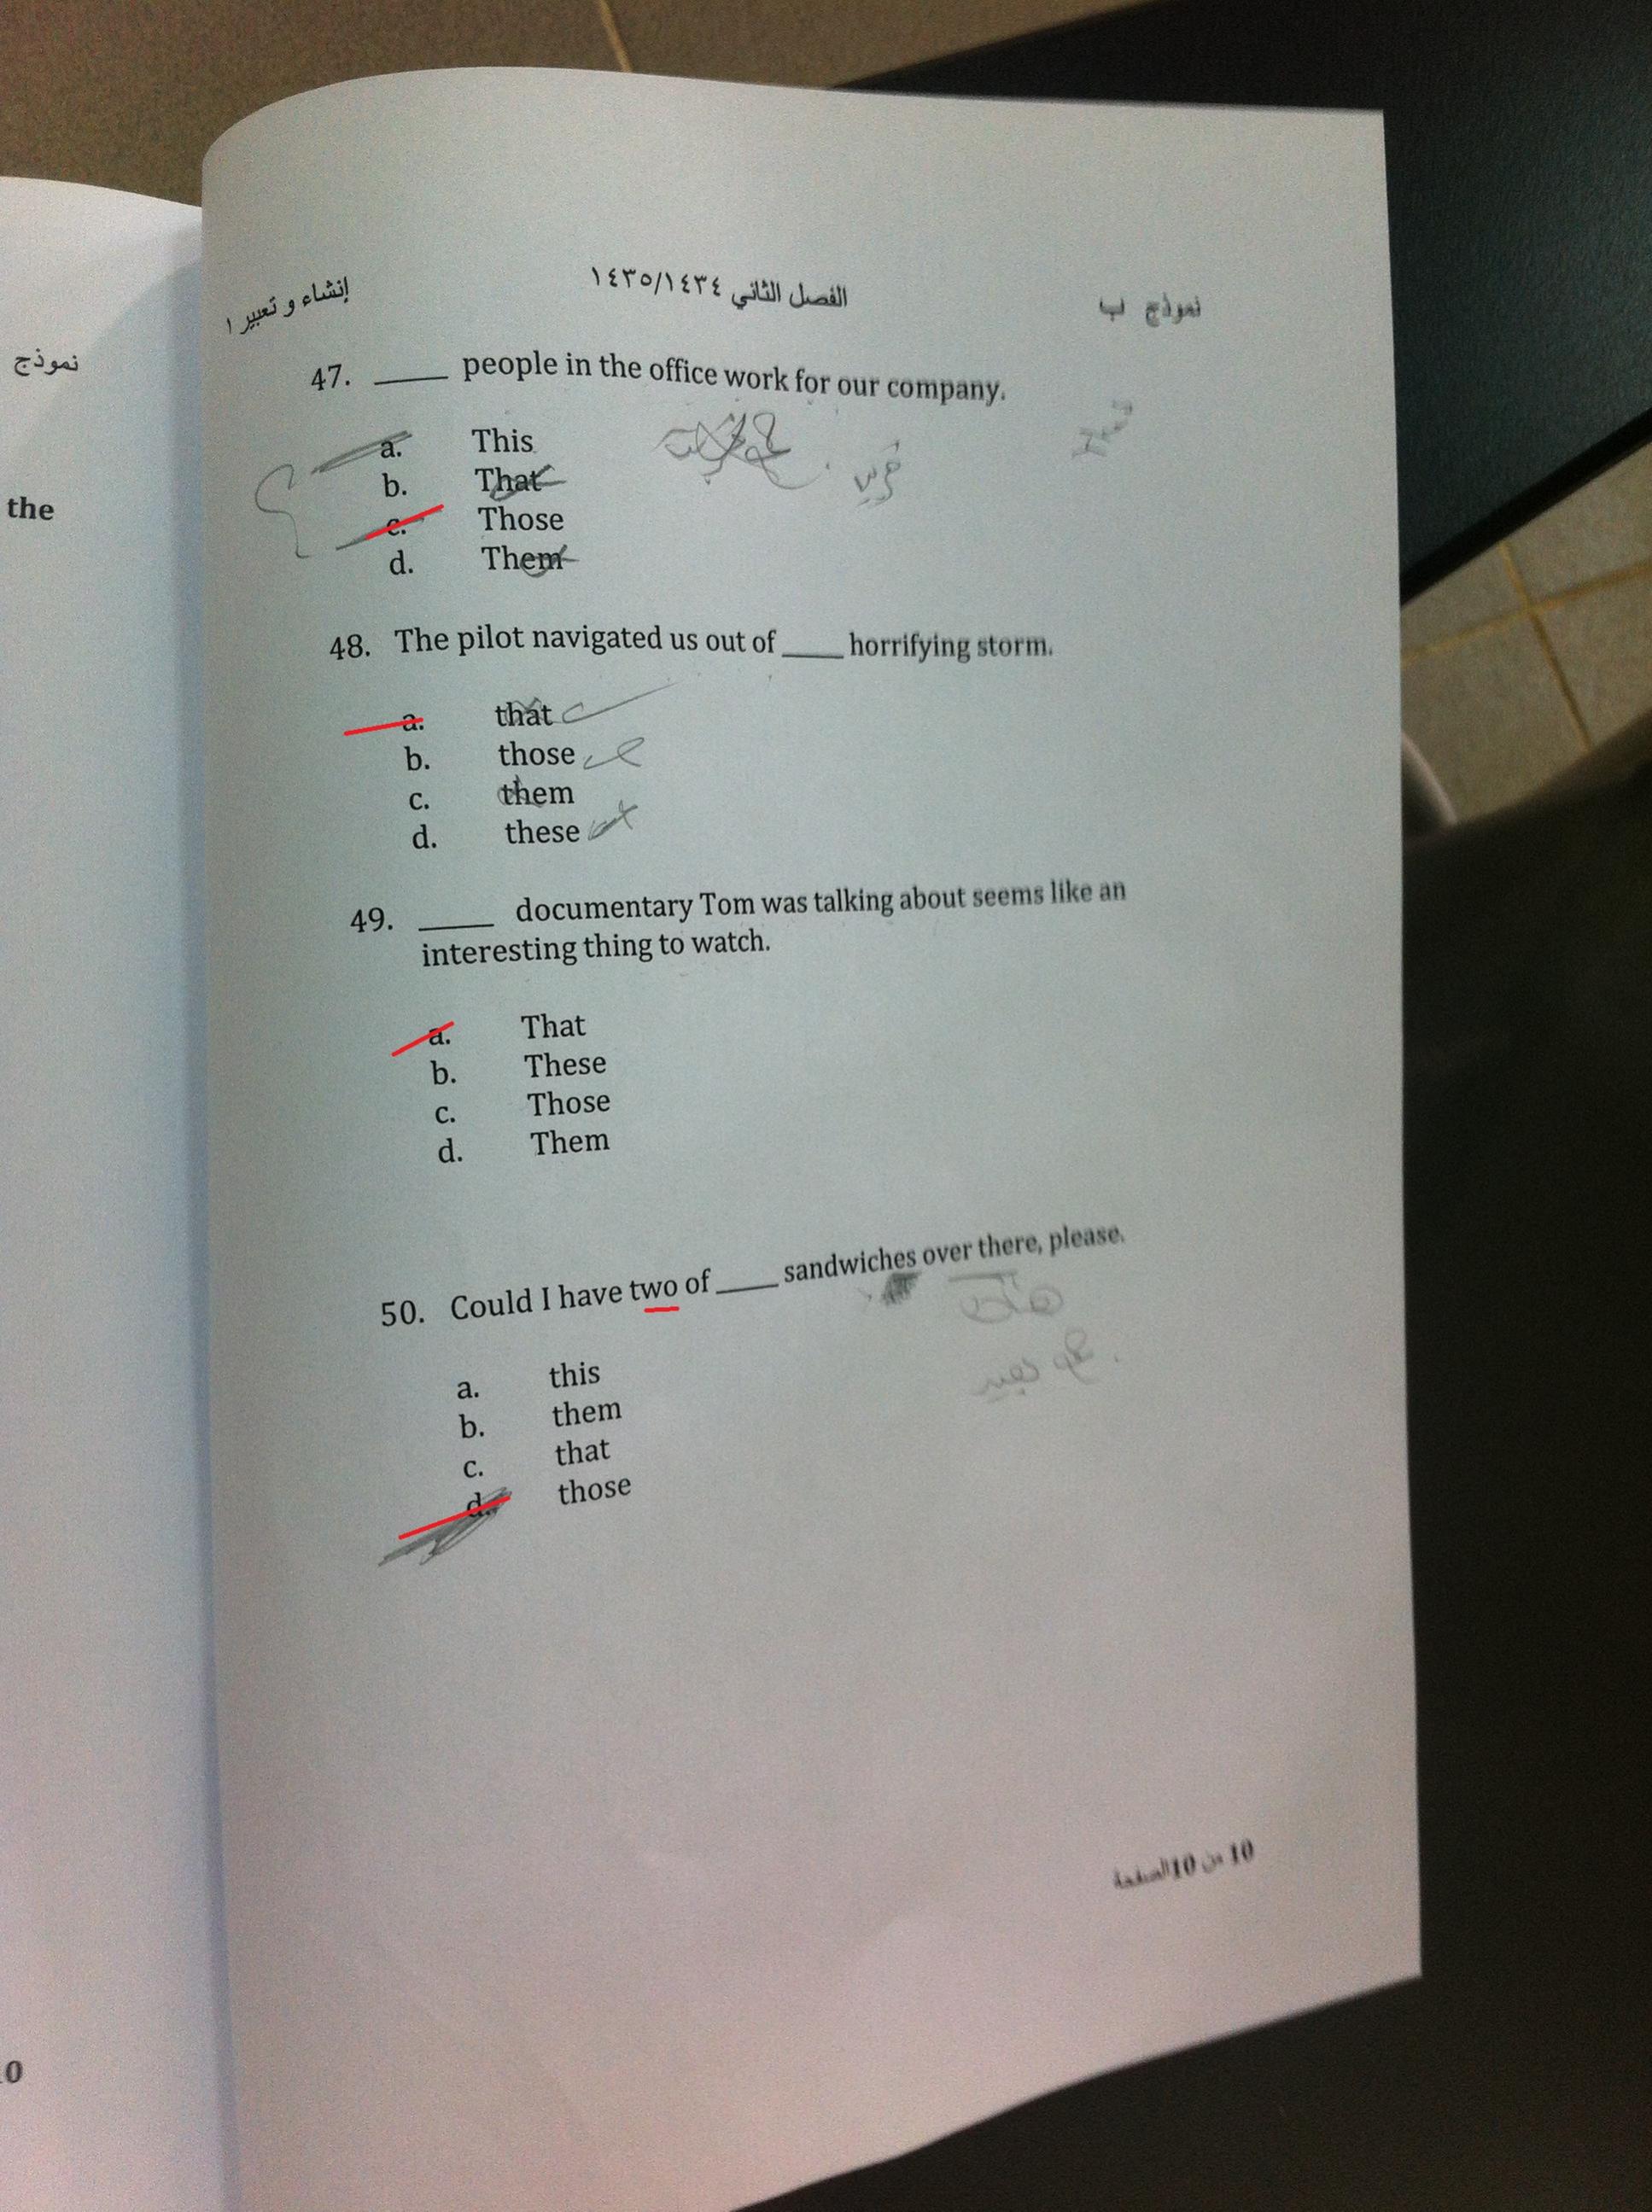 نموذج
the
.0
إنشاء و تعبير ١
الفصل الثاني ١٤٣٥/١٤٣٤
نموذج ب
47. ____ people in the office work for our company.
a. This
b. That
c. Those
d. Them
48. The pilot navigated us out of ____ horrifying storm.
a. that
b. those
c. them
d. these
49. ____ documentary Tom was talking about seems like an
interesting thing to watch.
a. That
b. These
c. Those
d. Them
50. Could I have two of ____ sandwiches over there, please.
a. this
b. them
c. that
d. those
الصفحة 10 من 10